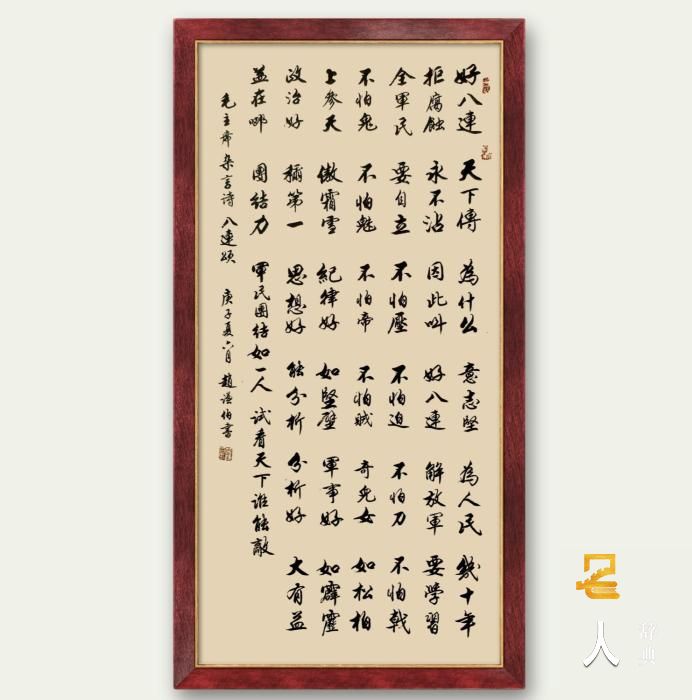 好八連 天下傳 為什么 意志堅 為人民 幾十年
拒腐蝕 永不沾 因此叫 好八連 解放軍 要學習
全軍民 要自立 不怕壓 不怕迫 不怕刀 不怕戟
不怕鬼 不怕魅 不怕帝 不怕賊 奇兒女 如松柏
上參天 傲霜雪 紀律好 如堅壁 軍事好 如霹靂
政治好 稱第一 思想好 能分析 分析好 大有益
益在哪 團結力 軍民團結如一人 試看天下誰能敵
毛主席 杂言詩 八連頌 庚子夏六月 趙 伯書
名人
辞典